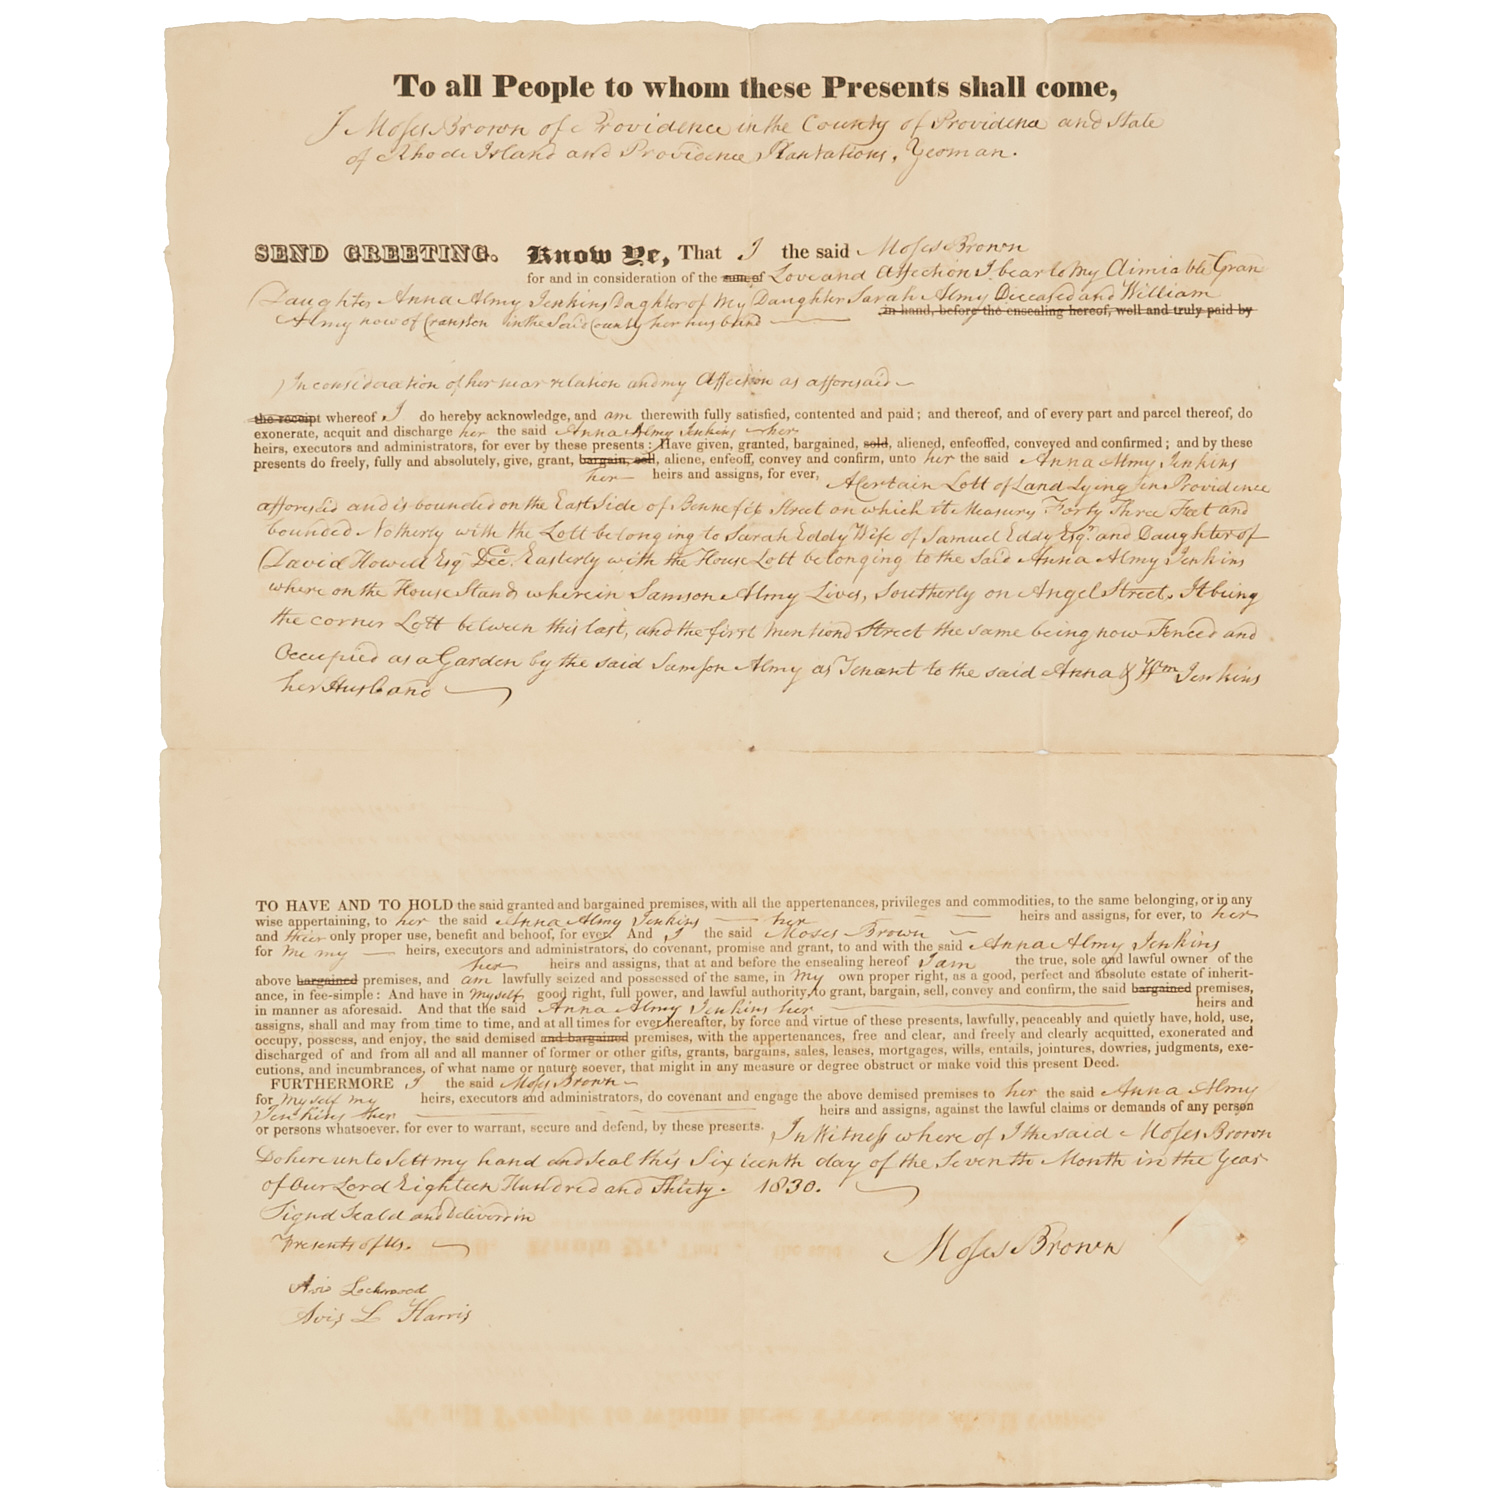 To all People to whom these Presents shall come,
I Moses Brown of Providence in the County of Providence and State
of Rhode Island and Providence Plantations, Yeoman.
SEND GREETING. Know Ye, That I the said Moses Brown
for and in consideration of the sum of Love and Affection I bear to My Aimiable Gran
Daughter Anna Almy Jenkins Daghter of My Daughter Sarah Almy Deceased and William
in hand, before the ensealing hereof, well and truly paid by
Almy now of Cranston in the Said County her husband
In consideration of her near relation and my Affection as afforesaid
the receipt whereof I do hereby acknowledge, and am therewith fully satisfied, contented and paid; and thereof, and of every part and parcel thereof, do
exonerate, acquit and discharge her the said Anna Almy Jenkins her
heirs, executors and administrators, for ever by these presents: Have given, granted, bargained, sold, aliened, enfeoffed, conveyed and confirmed; and by these
presents do freely, fully and absolutely, give, grant, bargain, sell, aliene, enfeoff, convey and confirm, unto her the said Anna Almy Jenkins
her heirs and assigns, for ever, A Certain Lott of Land Lying in Providence
afforesd and is bounded on the East Side of Bennefit Street on which it Measurs Forty Three Feet and
bounded Notherly with the Lott belonging to Sarah Eddy Wife of Samuel Eddy Esqr. and Daughter of
David Howell Esq Decd. Easterly with the House Lott belonging to the Said Anna Almy Jenkins
where on the House Stands wherein Samson Almy Lives, Southerly on Angel Street. It being
the corner Lott between this last, and the first Mentiond Street the same being now Fenced and
Occupied as a Garden by the said Samson Almy as Tenant to the said Anna & Wm Jenkins
her Husband
TO HAVE AND TO HOLD the said granted and bargained premises, with all the appertenances, privileges and commodities, to the same belonging, or in any
wise appertaining, to her the said Anna Almy Jenkins her heirs and assigns, for ever, to her
and their only proper use, benefit and behoof, for ever. And I the said Moses Brown
for me my heirs, executors and administrators, do covenant, promise and grant, to and with the said Anna Almy Jenkins
her heirs and assigns, that at and before the ensealing hereof I am the true, sole and lawful owner of the
above bargained premises, and am lawfully seized and possessed of the same, in My own proper right, as a good, perfect and absolute estate of inherit-
ance, in fee-simple: And have in Myself good right, full power, and lawful authority to grant, bargain, sell, convey and confirm, the said bargained premises,
in manner as aforesaid. And that the said Anna Almy Jenkins her heirs and
assigns, shall and may from time to time, and at all times for ever hereafter, by force and virtue of these presents, lawfully, peaceably and quietly have, hold, use,
occupy, possess, and enjoy, the said demised and bargained premises, with the appertenances, free and clear, and freely and clearly acquitted, exonerated and
discharged of and from all and all manner of former or other gifts, grants, bargains, sales, leases, mortgages, wills, entails, jointures, dowries, judgments, exe-
cutions, and incumbrances, of what name or nature soever, that might in any measure or degree obstruct or make void this present Deed.
FURTHERMORE I the said Moses Brown
for Myself my heirs, executors and administrators, do covenant and engage the above demised premises to her the said Anna Almy
Jenkins her heirs and assigns, against the lawful claims or demands of any person
or persons whatsoever, for ever to warrant, secure and defend, by these presents. In Witness where of I the said Moses Brown
Do here unto Sett my hand and Seal this Sixteenth day of the Seventh Month in the Year
of Our Lord Eighteen Hundred and Thirty. 1830.
Signd Seald and Deliverd in
Presents of Us.
Moses Brown
Avis Lockwood
Avis L Harris